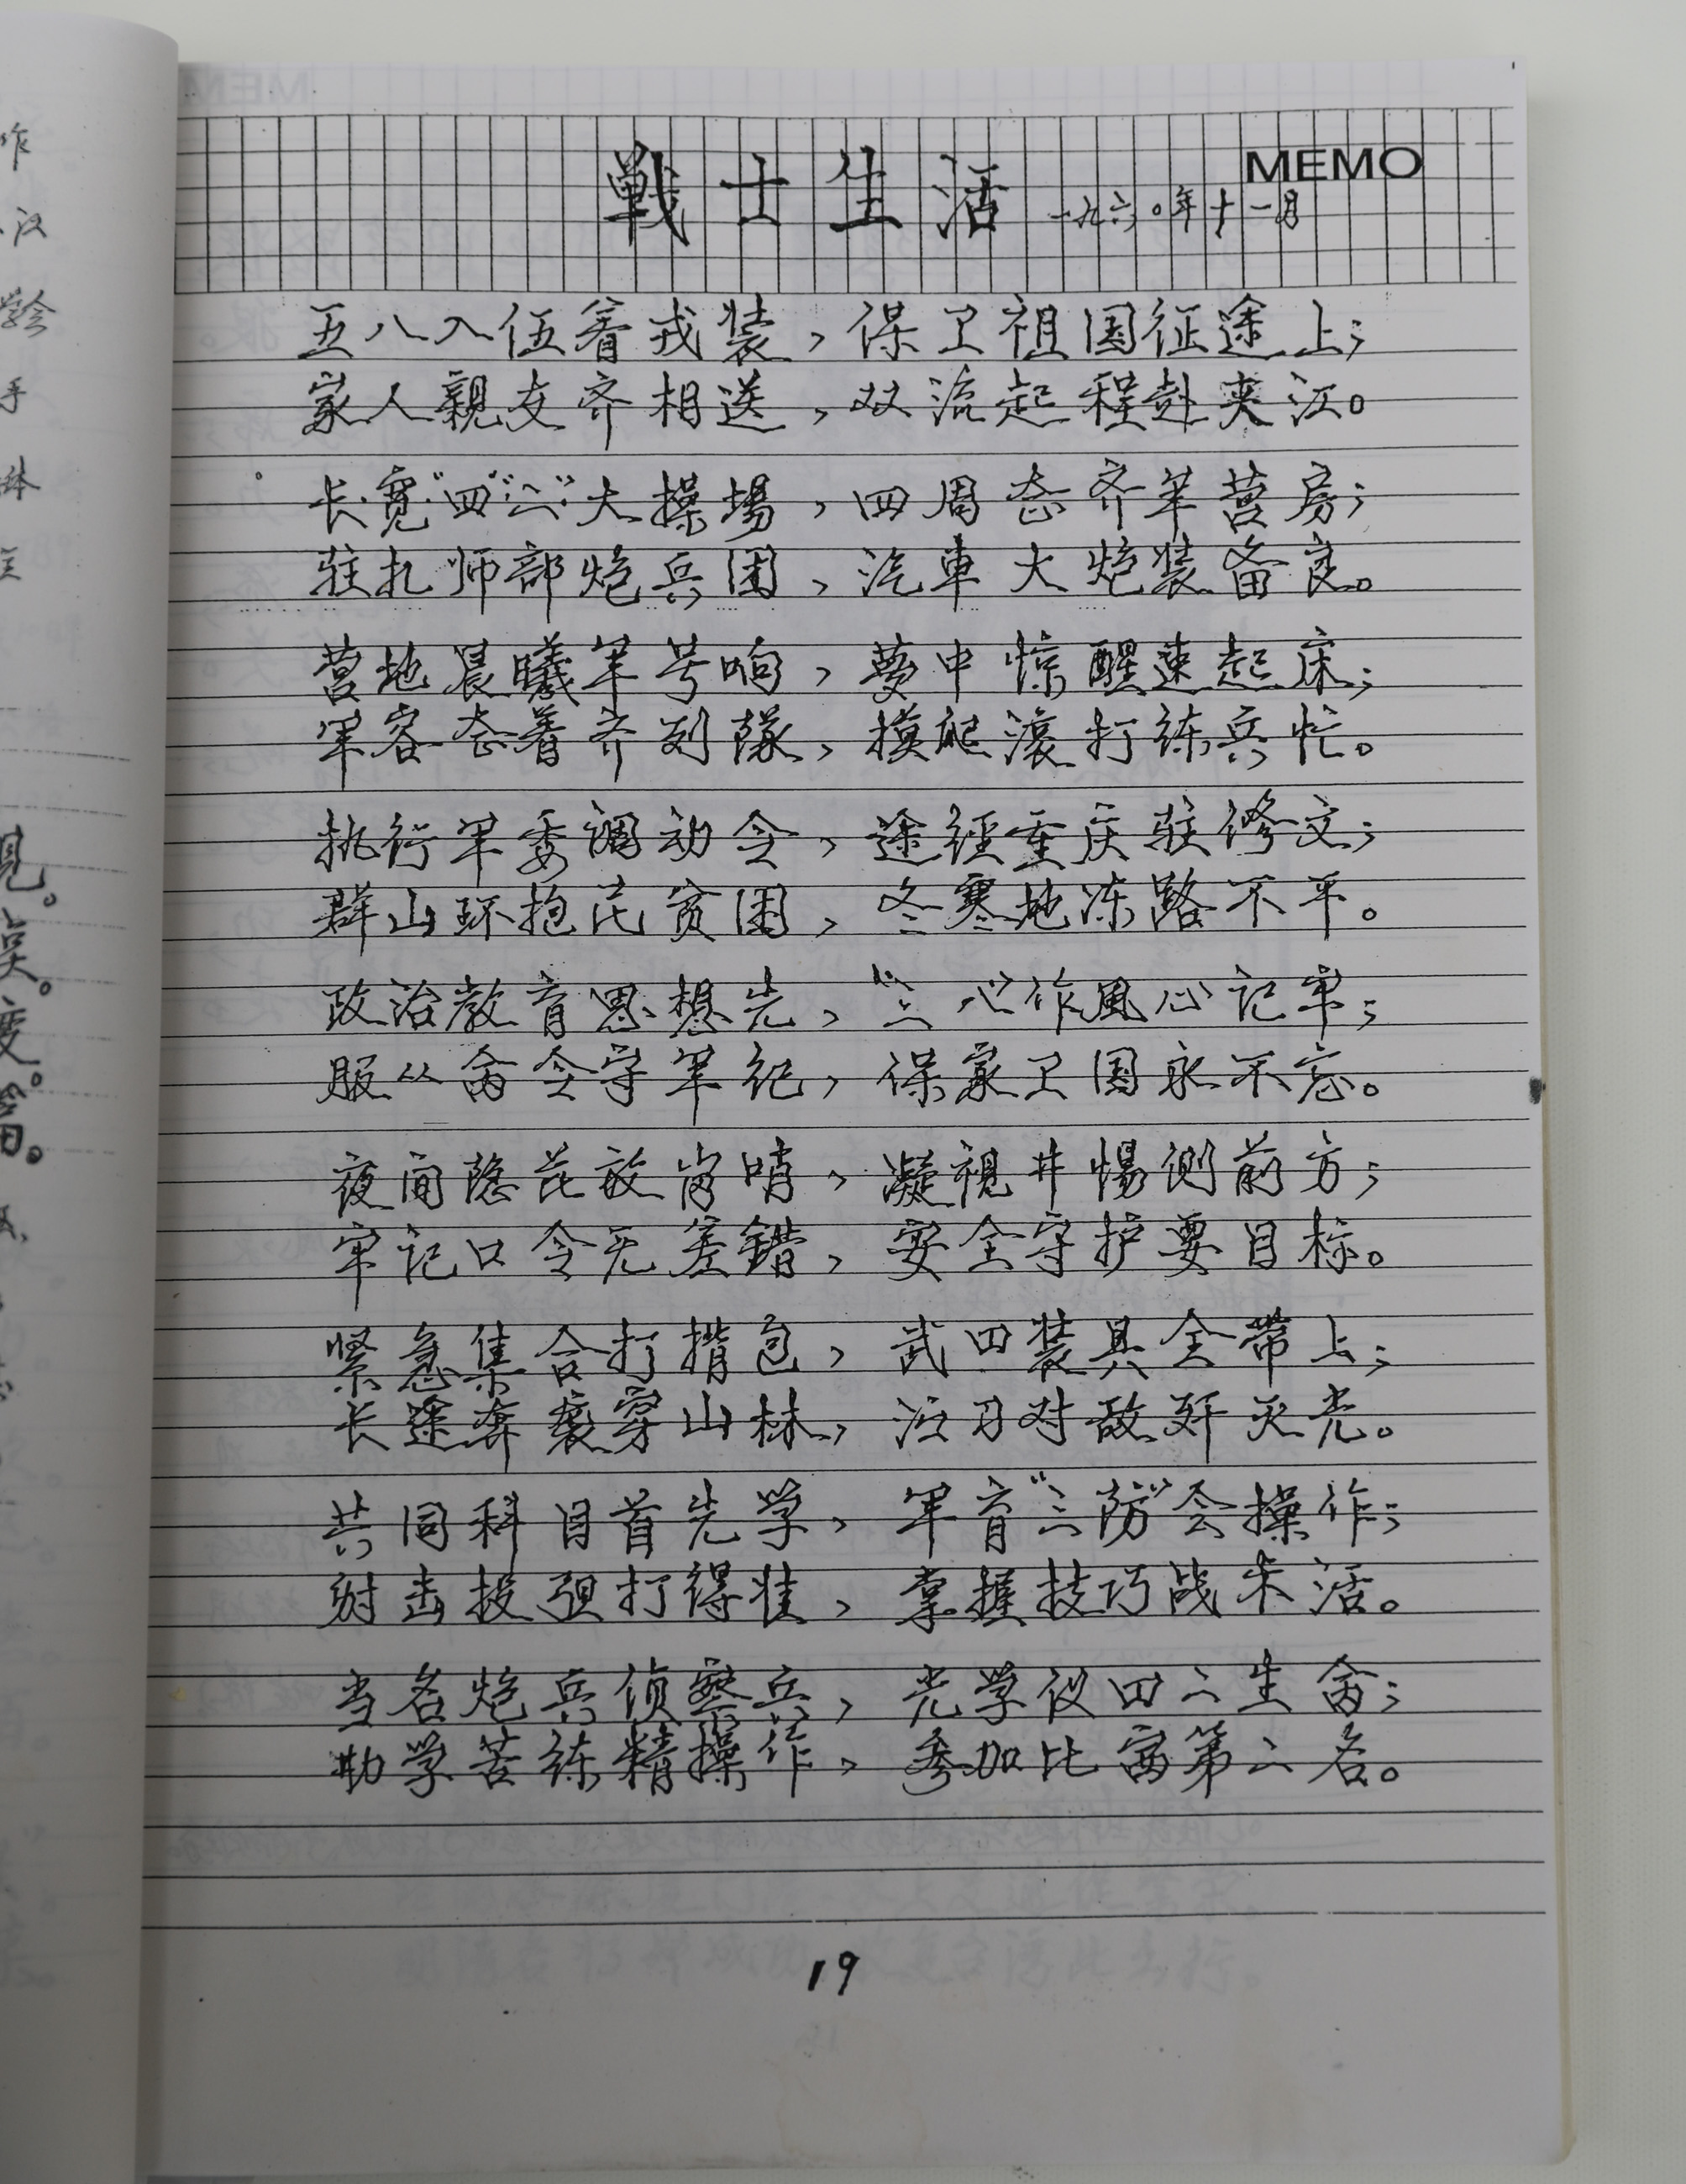 MEMO
戦士生活 一九六〇年十一月
五八入伍着戎装，保卫祖国征途上；
家人親友齐相送，双流起程赴夹江。
长宽"四""二"大操場，四周态齐军营房；
驻扎师部炮兵团，汽車大炮装备良。
营地晨曦军号响，梦中惊醒速起床；
军容态着齐列隊，摸爬滚打练兵忙。
执行军委调动令，途经重庆驻修文；
群山环抱茫贫困，冬寒地冻路不平。
政治教育思想先，"三八"作風心记牢；
服从命令守军纪，保家卫国永不忘。
夜间隐茫放岗哨，凝視井惕侧前方；
牢记口令无差錯，安全守护要目标。
紧急集合打揹包，武四装具全带上；
长途奔袭穿山林，活刀对敌歼灭光。
共同科目首先学，军育"三防"会操作；
射击投弹打得准，掌握技巧战术活。
当名炮兵侦察兵，光学仪四二生命；
勤学苦练精操作，参加比赛第二名。
19